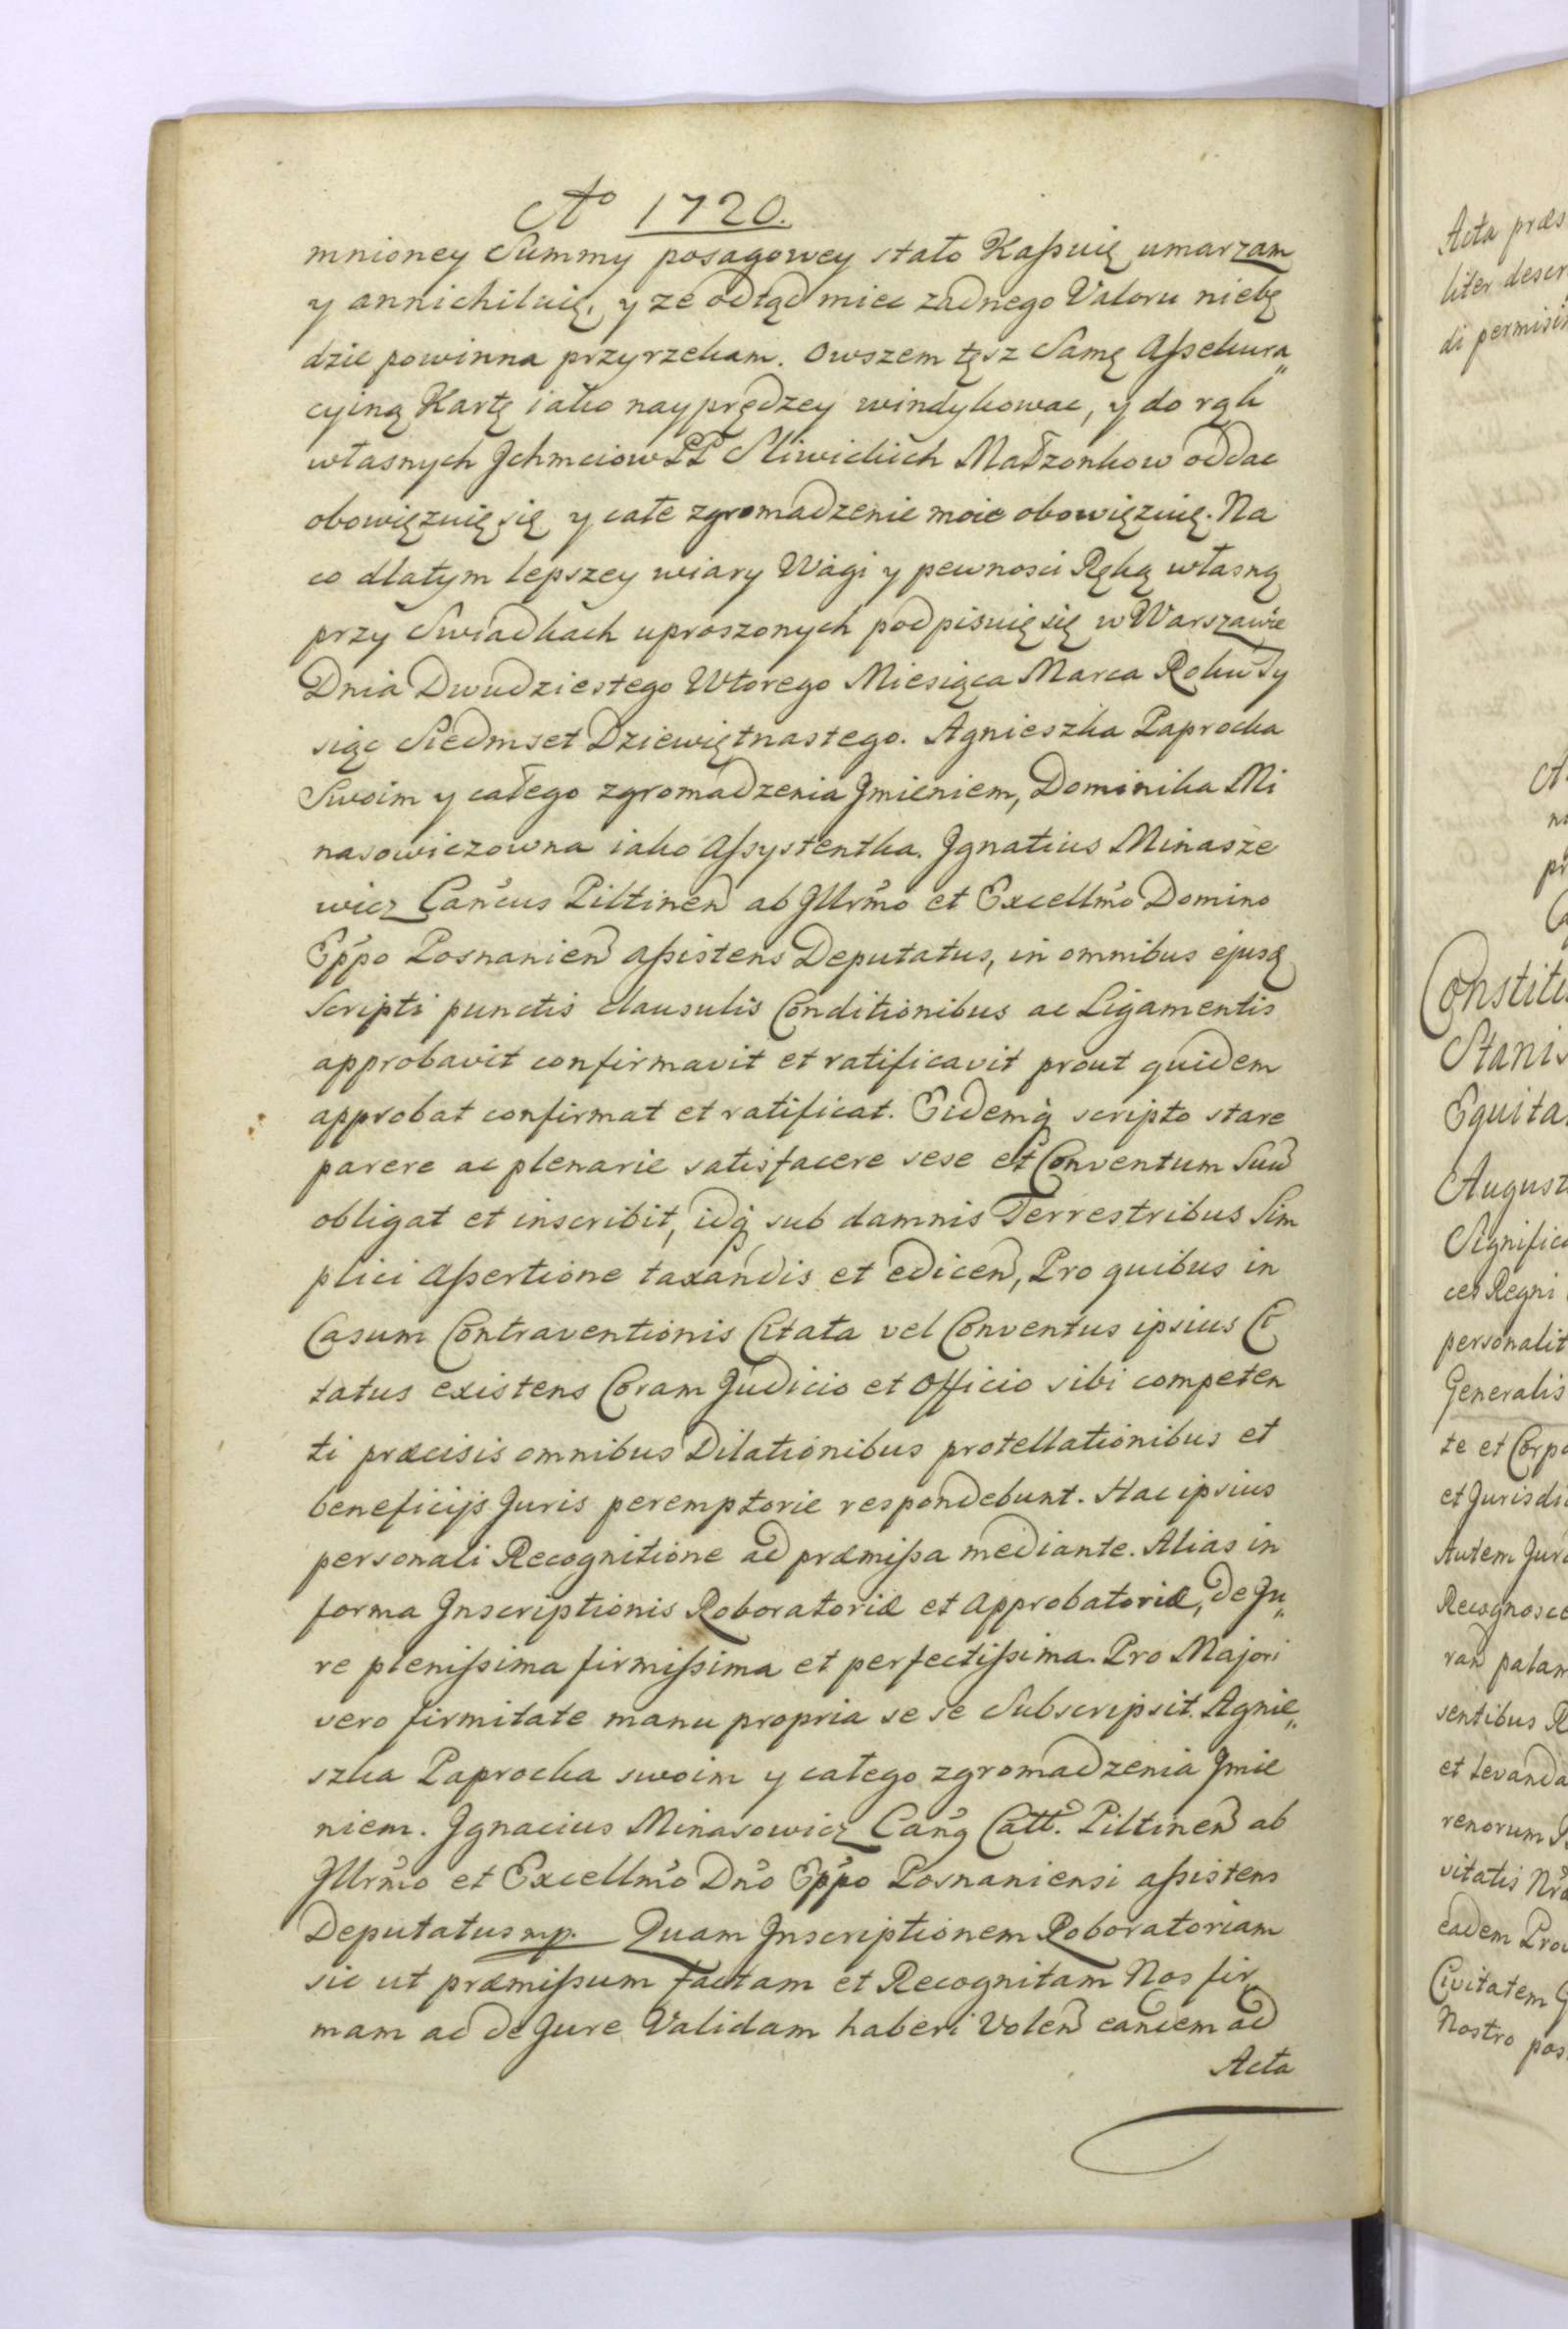 Aō 1720.
mnioney Summy posagowey stało Kaßuię umarzam
y annichiluię, y ze odtąd miec zadnego Valoru niebę
dzie powinna przyrzekam. Owszem tęsz Samę Aßekura„
cyiną Kartę iako nayprędzey windykowac, y do rąk
własnych Jchmciow PP Sliwickich Małzonkow oddac
obowięzuię się y całe zgromadzenie moie obowięzuię. Na
co dlatym lepszey wiary Wagi y pewnosci Ręką własną
przy Swiadkach uproszonych podpisuię się w Warszawie
Dnia Dwudziestego Wtorego Miesiąca Marca Roku Ty
siąc Siedmset Dziewiętnastego. Agnieszka Paprocka
Swoim y całego zgromadzenia Jmieniem, Dominika Mi
nasowiczowna iako Aßystentka. Jgnatius Minasze
wicz Cančus Piltinen̄ ab Jllrm̃o et Excellm̃o Domino
Epp̃o Posnanien̄ aßistens Deputatus, in omnibus ejusq́
scripti punctis clausulis Conditionibus ac Ligamentis
approbavit confirmavit et ratificavit prout quidem
approbat confirmat et ratificat. Eidemq́ scripto stare
parere ac plenarie satisfacere sese et Conventum Suū
obligat et inscribit, idq́ sub damnis Terrestribus Sim
plici Aßertione taxandis et edicen̄, Pro quibus in
Casum Contraventionis Citata vel Conventus ipsius Ci
tatus existens Coram Judicio et Officio sibi competen
ti præcisis omnibus Dilationibus protellationibus et
beneficijs Juris peremptorie respondebunt. Hac ipsius
personali Recognitione ad præmißa mediante. Alias in
forma Jnscriptionis Roboratoriæ et Approbatoriæ, de Ju„
re plenißima firmißima et perfectißima. Pro Majori
vero firmitate manu propria se se Subscripsit. Agnie„
szka Paprocka swoim y całego zgromadzenia Jmie
niem. Jgnacius Minasowicz Can̄q Catt. Piltinen̄ ab
Jllrm̃o et Excellm̃o Dn̄o Epp̃o Posnaniensi aßistens
Deputatus mp. Quam Jnscriptionem Roboratoriam
sic ut præmißum factam et Recognitam Nos fir
mam ac de Jure Validam haberi Volen̄ eandem ad
Acta
Acta præs
liter descr
di permisi
Constitu
Stanis
Equita
August
Significa
ces Regni
personalit
Generalis
te et Corpo
et Jurisdi
Autem Jur
Recognosce
ran̄ palam
sentibus R
et levanda
renorum
vitatis Nr̃æ
eadem Pro
Civitatem
Nostro pos